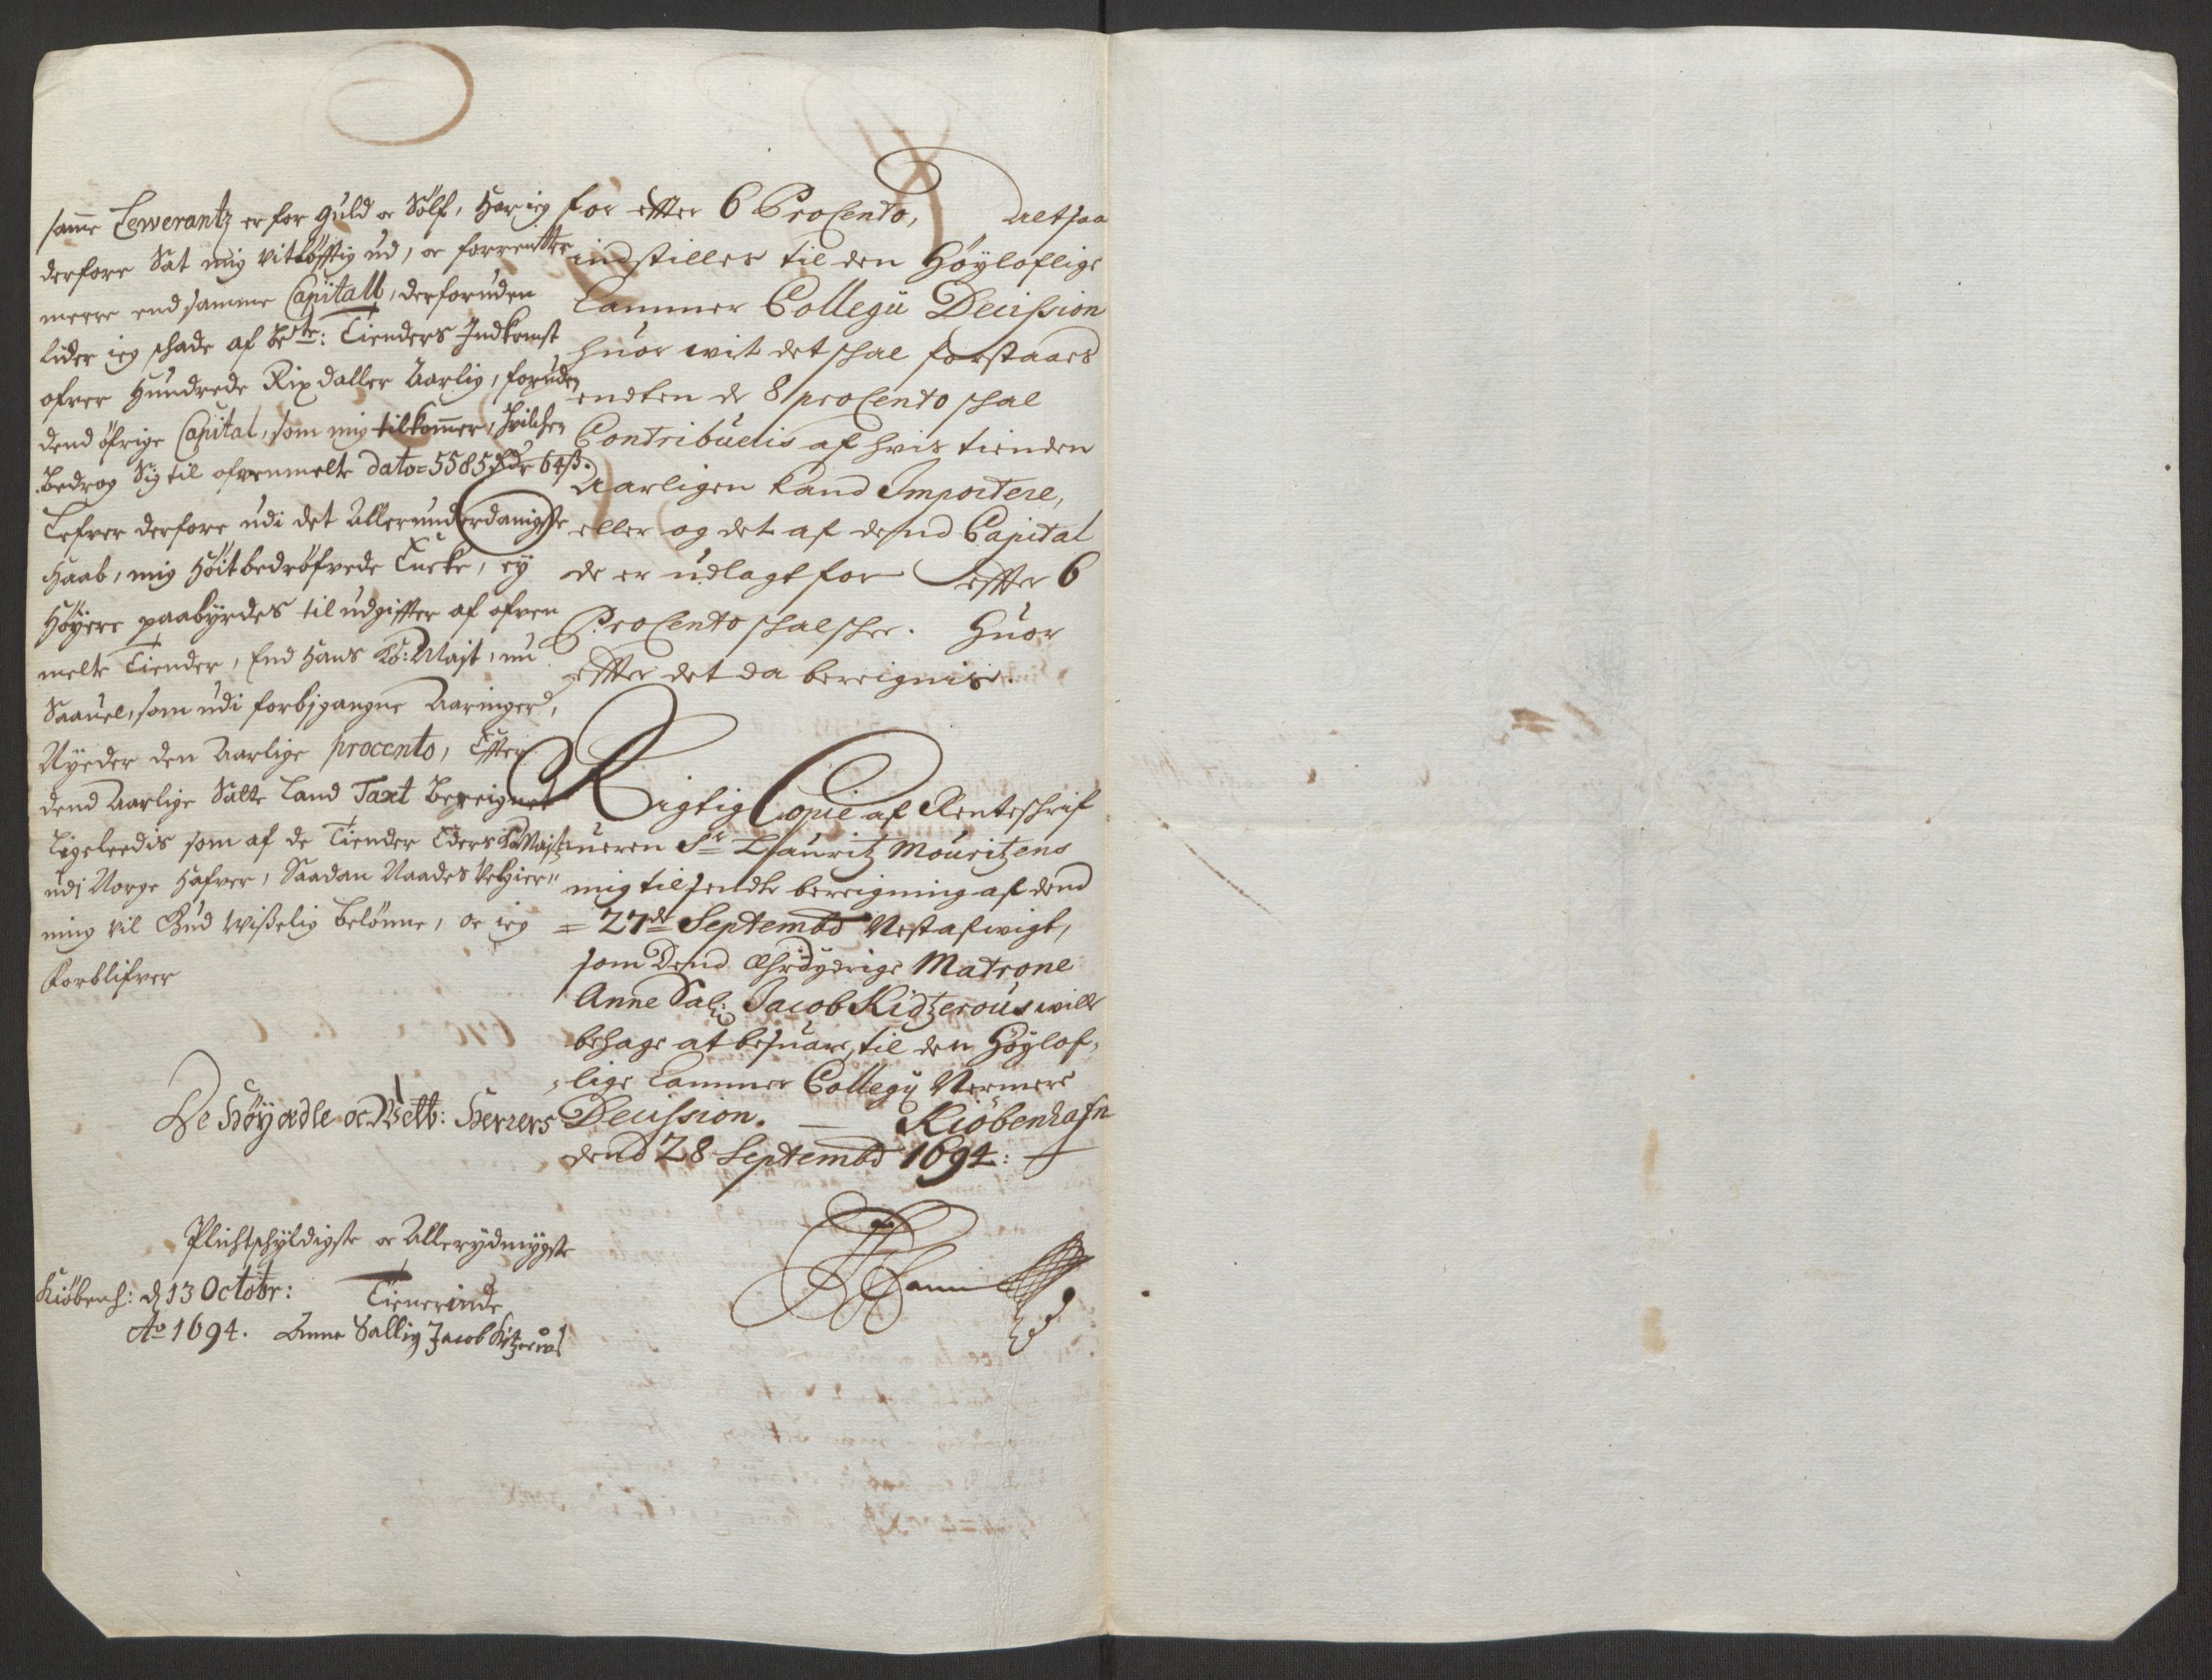 samme Lewerantz er for guld oc Sölf, Har ieg
derfore Sat mig vitlöfftig ud, oc forrentter
meere end samme Capitall, derforuden
lider ieg schade af be.te: Tienders Indkomst
ofver Hundrede Rixdaller Aarlig, foruden
dend öfrige Capital, som mig tilkommer, hvilchen
bedrog Sig til ofvenmelte dato = 5585 Rdr 64 ß.
Lefver derfore udi det Allerunderdanigste
Haab, mig Höitbedröfvede Encke, ey
Höyere paabyrdes til udgiffter af ofven
melte Tiender, End Hans Ko: Mayt, nu
Saauel, som udi forbigangne Aaringer,
Nyeder den Aarlige procento, Effter
dend Aarlige Satte Land Taxt Bereignet
Ligeleedis som af de Tiender Eders Ko Mayt
udi Norge Hafver, Saadan Naades
ming vil Gud Wißelig belönne, oc ieg
forblifver
De Höyædle oc Welb: Herrers
Plichtschyldigste oc Allerydmygste
Kiöbenh: d 13 Octobr: Tienerinde
Ao 1694. Anne Sallig Jacob Kitzerous
for effter 6 ProCento, Altsaa
indstilles til den Höyloflige
Cammer Collegii Decission
huor wit det schal forstaaes
endten de 8 proCento schal
Contribueris af hvis tienden
Aarligen kand Importere,
eller og det af dend Capital
de er udlagt for effter 6
ProCento schal schee. Huor
effter det da bereignis.
Rigtig Copie af Renteschrif
ueren Sr Lauritz Mouritzens
mig tilsendte bereigning af dend
= 27de Septembd Nest afwigt,
som Dend Ehrdydrige Matrone
Anne Sal: Jacob Kidtzerous wille
behage at besuare, til den Höylof-
lige Cammer Collegij Nermere
Decission. Kiöbenhafn
dend 28 Septembd 1694: